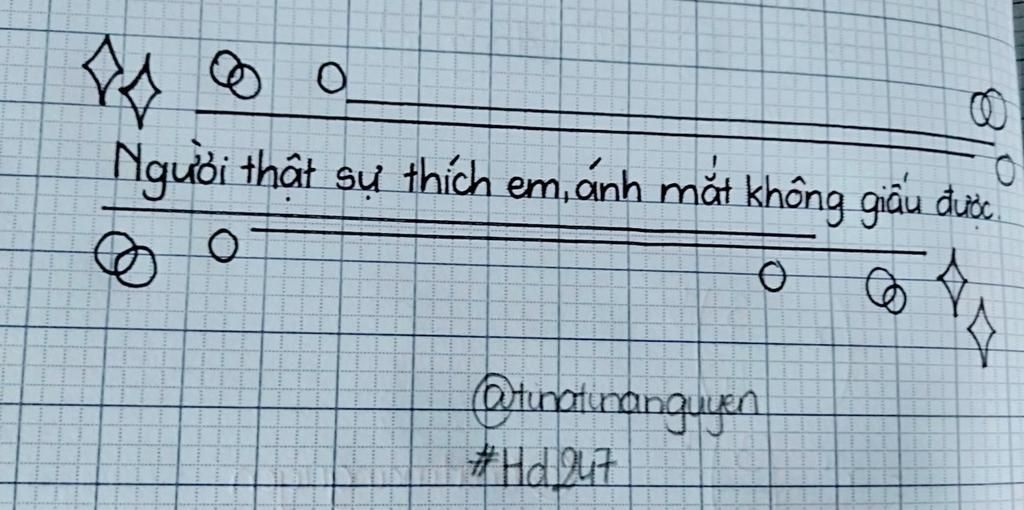 Người thật sự thích em, ánh mắt không giấu được.
@tunatunanguyen
#Hd247